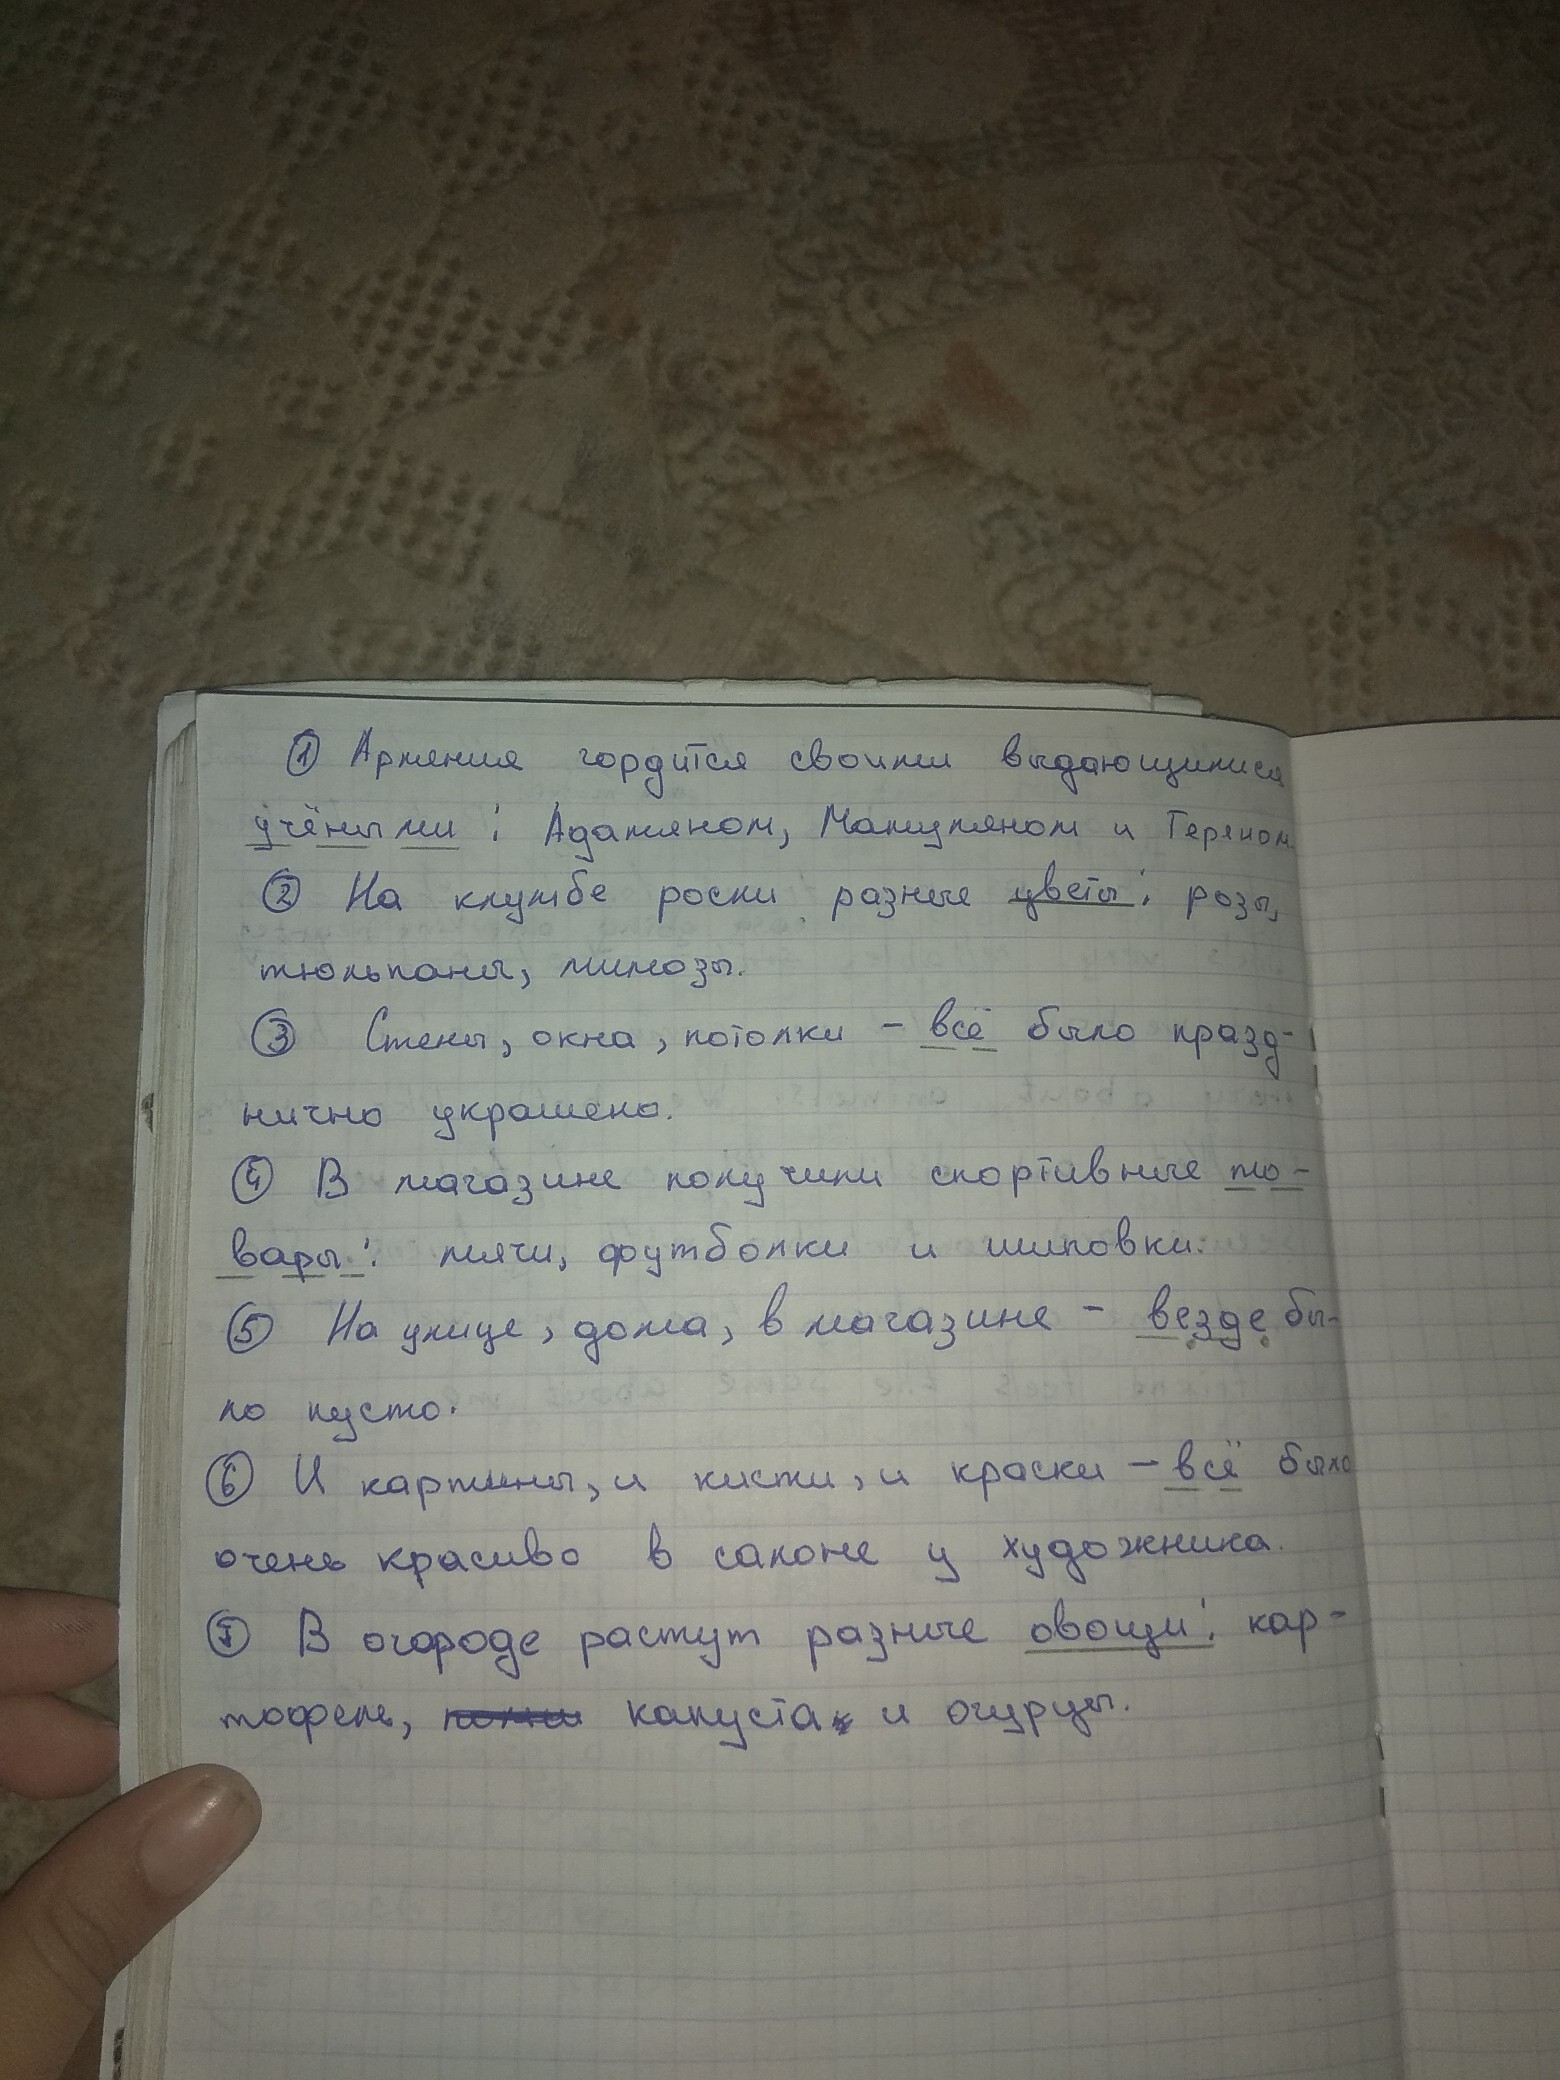 ① Армения гордится своими выдающимися
учёными: Адамяном, Мамуляном и Теряном.
② На клумбе росли разные цветы: розы,
тюльпаны, мимозы.
③ Стены, окна, потолки – всё было празд-
нично украшено.
④ В магазине получили спортивные то-
вары: мячи, футболки и шиповки.
⑤ На улице, дома, в магазине – везде бы-
ло пусто.
⑥ И картины, и кисти, и краски – всё было
очень красиво в салоне у художника.
⑦ В огороде растут разные овощи: кар-
тофель, капуста и огурцы.